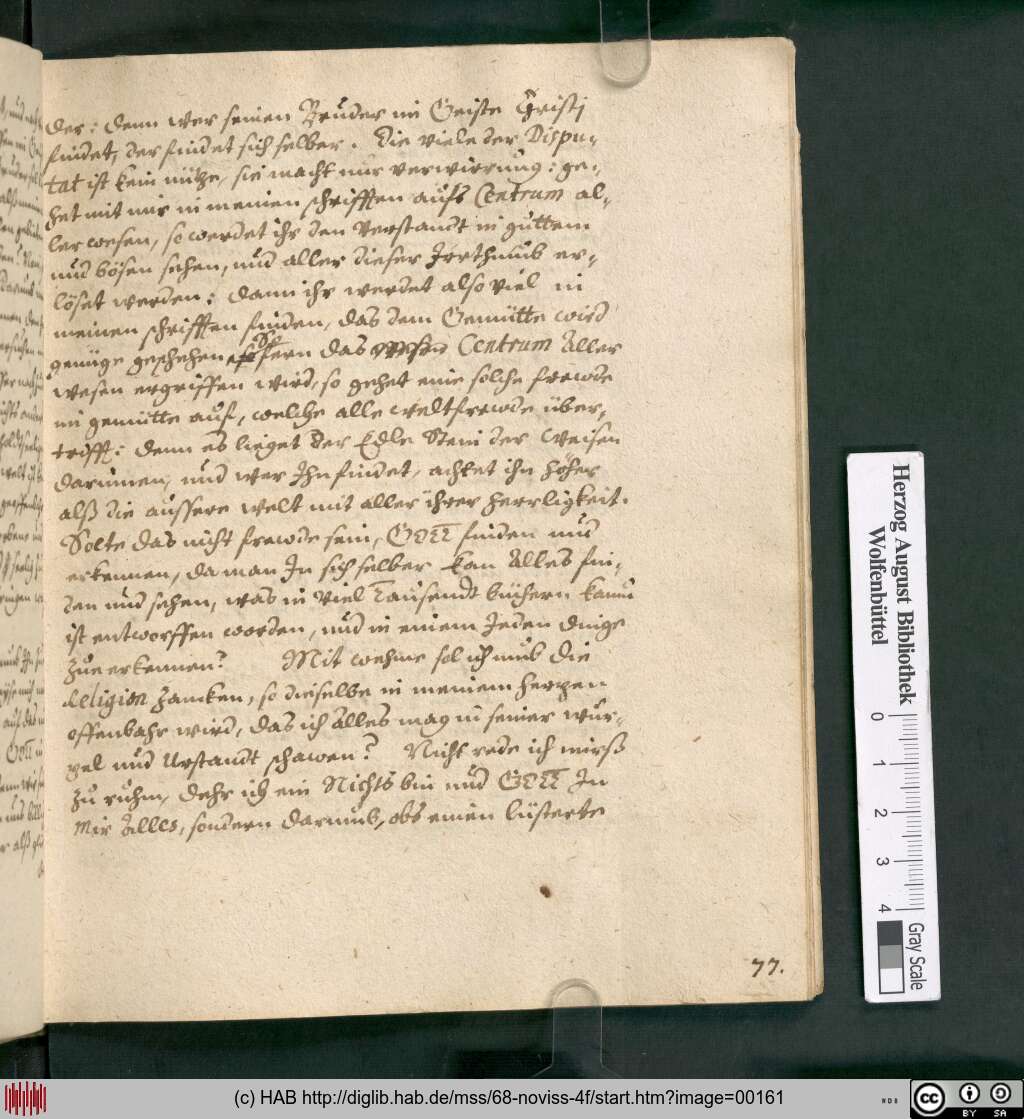 der: denn wer seinen Bruder im Geiste Christi
findet, der findet sich selber. Die viele der Dispu-
tat ist kein nütze, sie macht nur verwirrung: ge-
het mit mir in meinen schrifften aufs Centrum al-
ler wesen, so werdet ihr den verstandt in guttem
und bösen sehen, und aller dieser Irrthumb er-
löset werden: dann ihr werdet also viel in
meinen schrifften finden, das dem Gemütte wird
genüge geschehen, So fern das Centrum Aller
wesen ergriffen wird, so gehet eine solche frewde
im gemütte auf, welche alle weltfrewde über-
trifft: denn es lieget der Edle Stein der Weisen
darinnen, und wer Ihn findet, achtet ihn höher
alß die aussere welt mit aller ihrer herrligkeit.
Solte das nicht frewde sein, GOTT finden und
erkennen, da man In sich selber kan Alles fin-
den und sehen, was in viel Tausendt büchern kaum
ist entworffen worden, und in einem Jeden dinge
zue erkennen? Mit wehme sol ich umb die
Religion zancken, so dieselbe in meinem herzen
offenbahr wird, das ich Alles mag in seiner wur-
zel und Urstandt schawen? Nicht rede ich mirß
zu ruhm, dehr ich ein Nichts bin und GOTT In
Mir Alles, sondern darumb, obs einen lüsterte
77.
Herzog August Bibliothek
Wolfenbüttel
0 1 2 3 4
Gray Scale
(c) HAB http://diglib.hab.de/mss/68-noviss-4f/start.htm?image=00161
cc BY SA